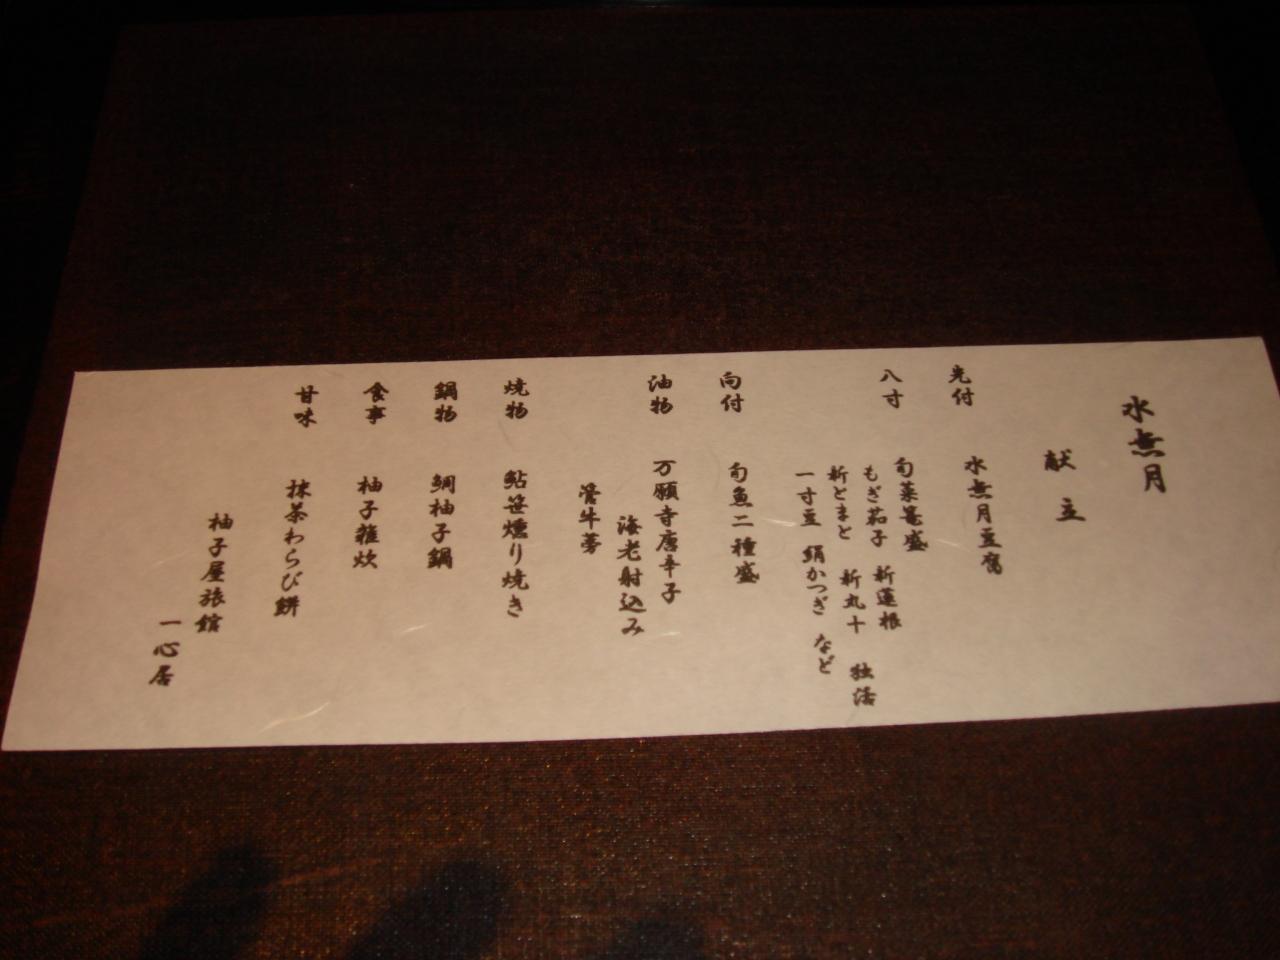 水無月
献立
先付 水無月豆腐
八寸 旬菜篭盛
もぎ茄子 新蓮根 独活
新とまと 新丸十
一寸豆 絹かつぎ など
向付 旬魚二種盛
油物 万願寺唐辛子
海老射込み
管牛蒡
焼物 鮎笹燻り焼き
鍋物 鯛柚子鍋
食事 柚子雑炊
甘味 抹茶わらび餅
柚子屋旅館
一心居